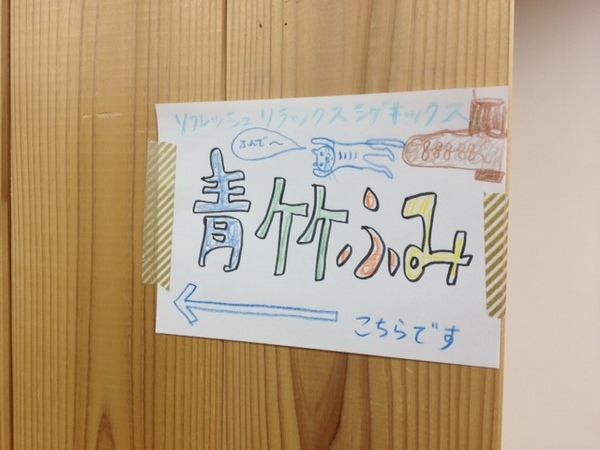 リフレッシュ リラックス シゲキックス
ふんで〜
青竹ふみ
こちらです